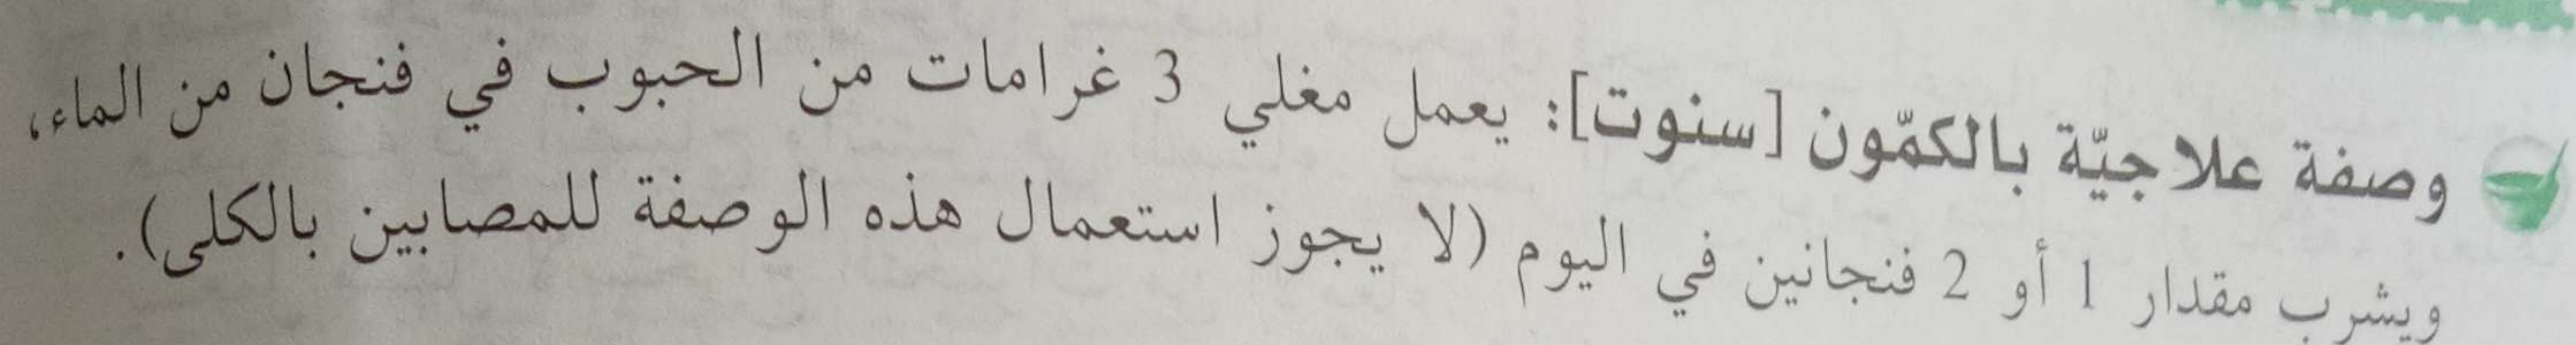 وصفة علاجيّة بالكمّون [سنوت]: يعمل مغلي 3 غرامات من الحبوب في فنجان من الماء،
ويشرب مقدار 1 أو 2 فنجانين في اليوم (لا يجوز استعمال هذه الوصفة للمصابين بالكلى).